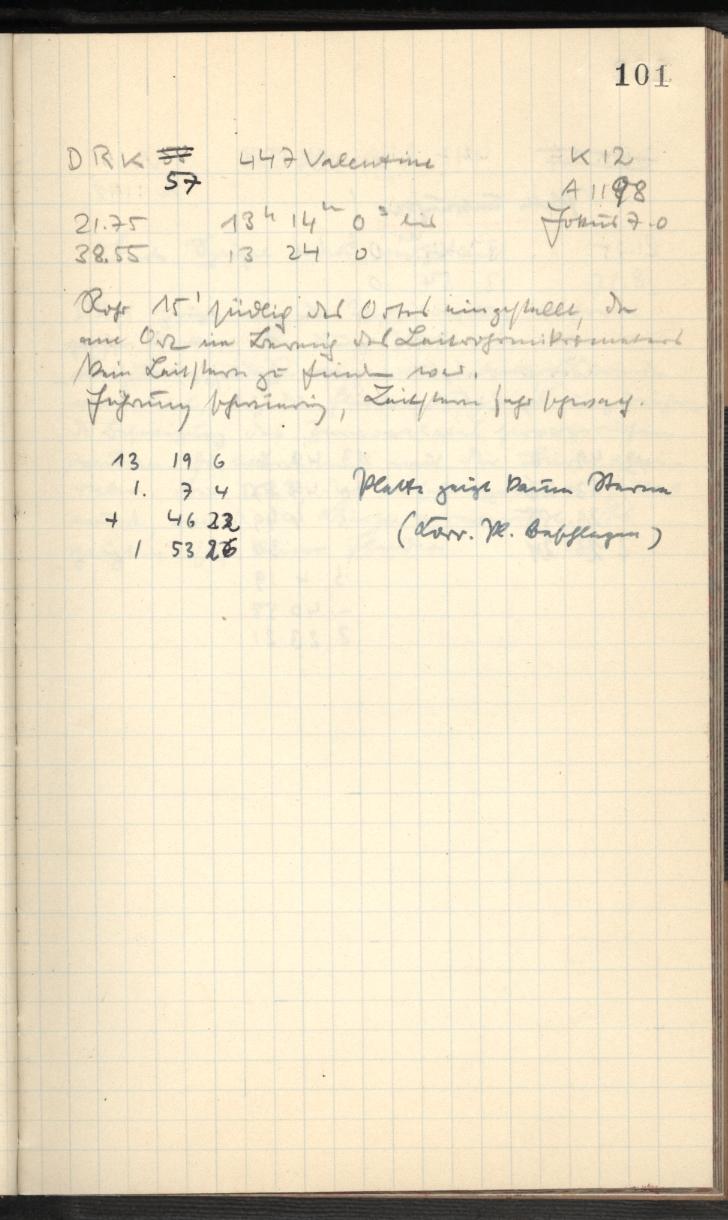 101
DRK 57 447 Valentine K 12
A 1198
21.75 13h 14m 0s bis Fokus 7.0
38.55 13 24 0
Rohr 15' südlich des Ortes eingestellt, da
am Ort im Bereich des Leitrohrmikrometers
kein Leitstern zu finden war.
Führung schwierig, Leitstern sehr schwach.
13 19 6
1. 7 4 Platte zeigt kaum Sterne
+ 46 22 (Korr. Pl. beschlagen)
1 53 26